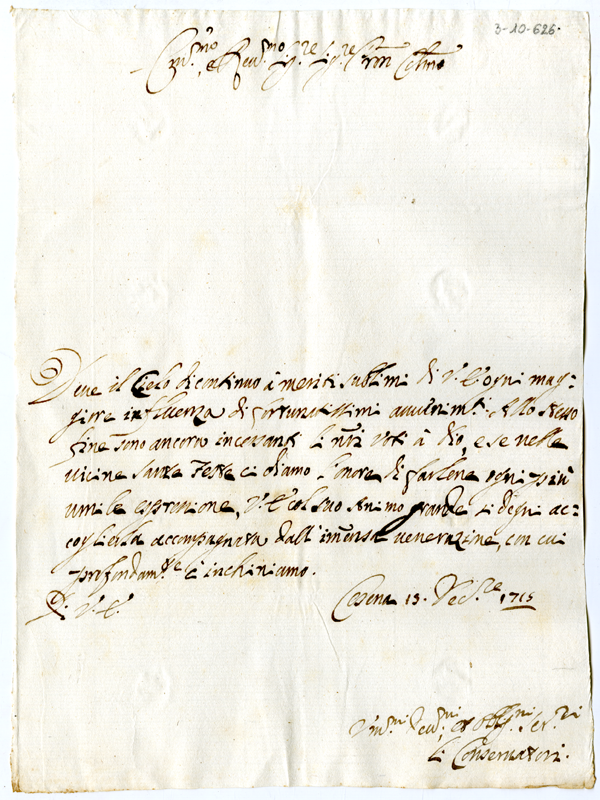 3-10-626.
Em.mo e Rev.mo Sig.re Sig.re P.ron Col.mo
Deve il Cielo di continuo à meriti sublimi di V.E. ogni mag=
giore influenza di fortunatissimi avvenim.ti. Allo stesso
fine sono ancora incessanti li n̄ri voti à Dio, e se nelle
vicine Sante Feste ci diamo l'onore di fargliene ogni più
umile espressione, V.E. col suo Animo grande si degni ac=
coglierla accompagnata dall'im̄ensa venerazione, con cui
profondam.te c'inchiniamo.
Di V.E.
Cesena 13. Dec.re 1715
Um.mi Dev.mi et Obblig.mi Ser.ri
li Conservatori.